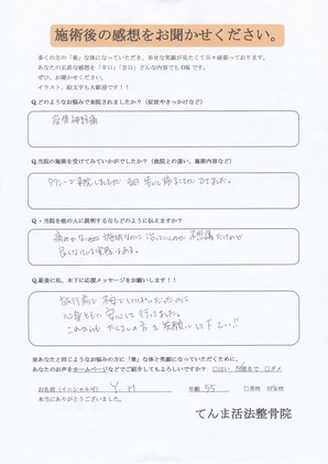 施術後の感想をお聞かせください。
多くの方の「楽」な体になっていただき、幸せな笑顔が見たくて日々頑張っております。
あなたの正直な感想を「辛口」「甘口」どんな内容でもOKです。
ぜひ、お聞かせください。
イラスト、絵文字も大歓迎です！！
Q.どのようなお悩みで来院されましたか？（症状やきっかけなど）
座骨神経痛
Q.当院の施術を受けてみていかがでしたか？（他院との違い、施術内容など）
タクシーで来院しましたが 歩いて帰ることができました。
Q・当院を他の人に説明するならどのように伝えますか？
痛みがない 施術なのに 治っていくのが 不思議だけれど
良くなっている実感はある。
Q.最後に私、木下に応援メッセージをお願いします！！
旅行前で
心身ともに 安心して 行けました。
これからも たくさんの方を 笑顔にして下さい!!
※あなたと同じようなお悩みの方に「楽」な体と笑顔になっていただくために、
あなたのお声をホームページなどでご紹介してもよろしいですか？ □はい 匿名で □ダメ
お名前（イニシャル可） Y.M 年齢 55 □男性 女性
本当にありがとうございました。
てんま活法整骨院